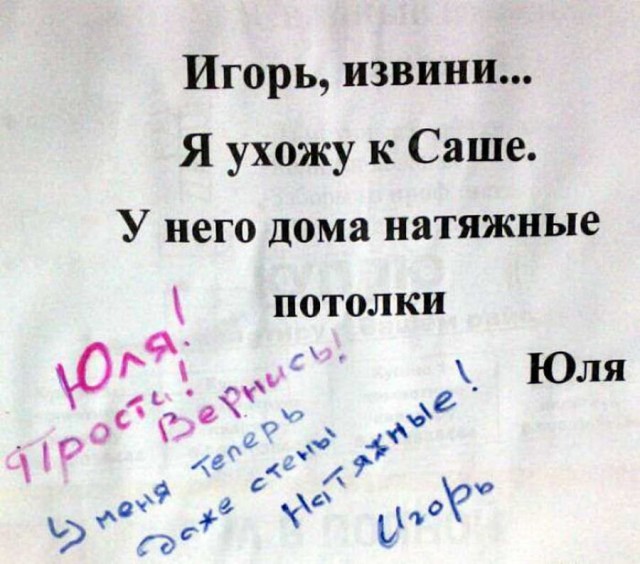 Игорь, извини...
Я ухожу к Саше.
У него дома натяжные
потолки
Юля
Юля!
Прости!
Вернись!
У меня теперь
даже стены
натяжные!
Игорь